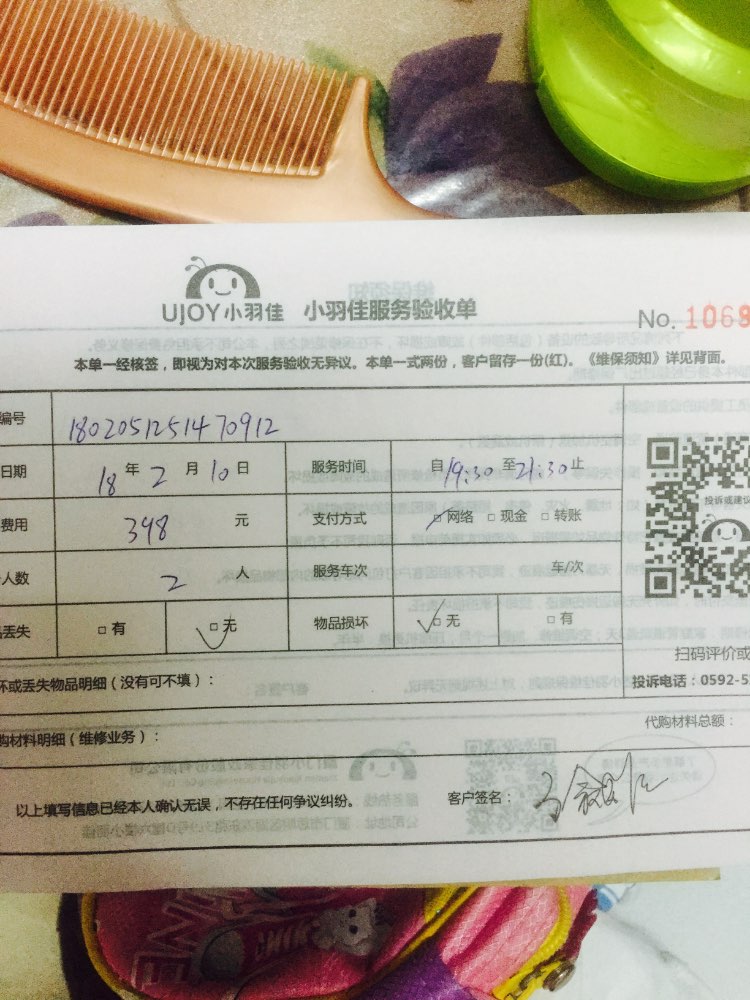 UJOY小羽佳 小羽佳服务验收单
No. 1068
本单一经核签，即视为对本次服务验收无异议。本单一式两份，客户留存一份(红)。《维保须知》详见背面。
编号 1802051251470912
日期 18 年 2 月 10 日 服务时间 自 19:30 至 21:30 止
费用 398 元 支付方式 □网络 □现金 □转账
人数 2 人 服务车次 车/次
丢失 □有 □无 物品损坏 □无 □有
投诉或建议
扫码评价或
坏或丢失物品明细（没有可不填）：
投诉电话：0592-5
购材料明细（维修业务）：
代购材料总额：
以上填写信息已经本人确认无误，不存在任何争议纠纷。 客户签名：